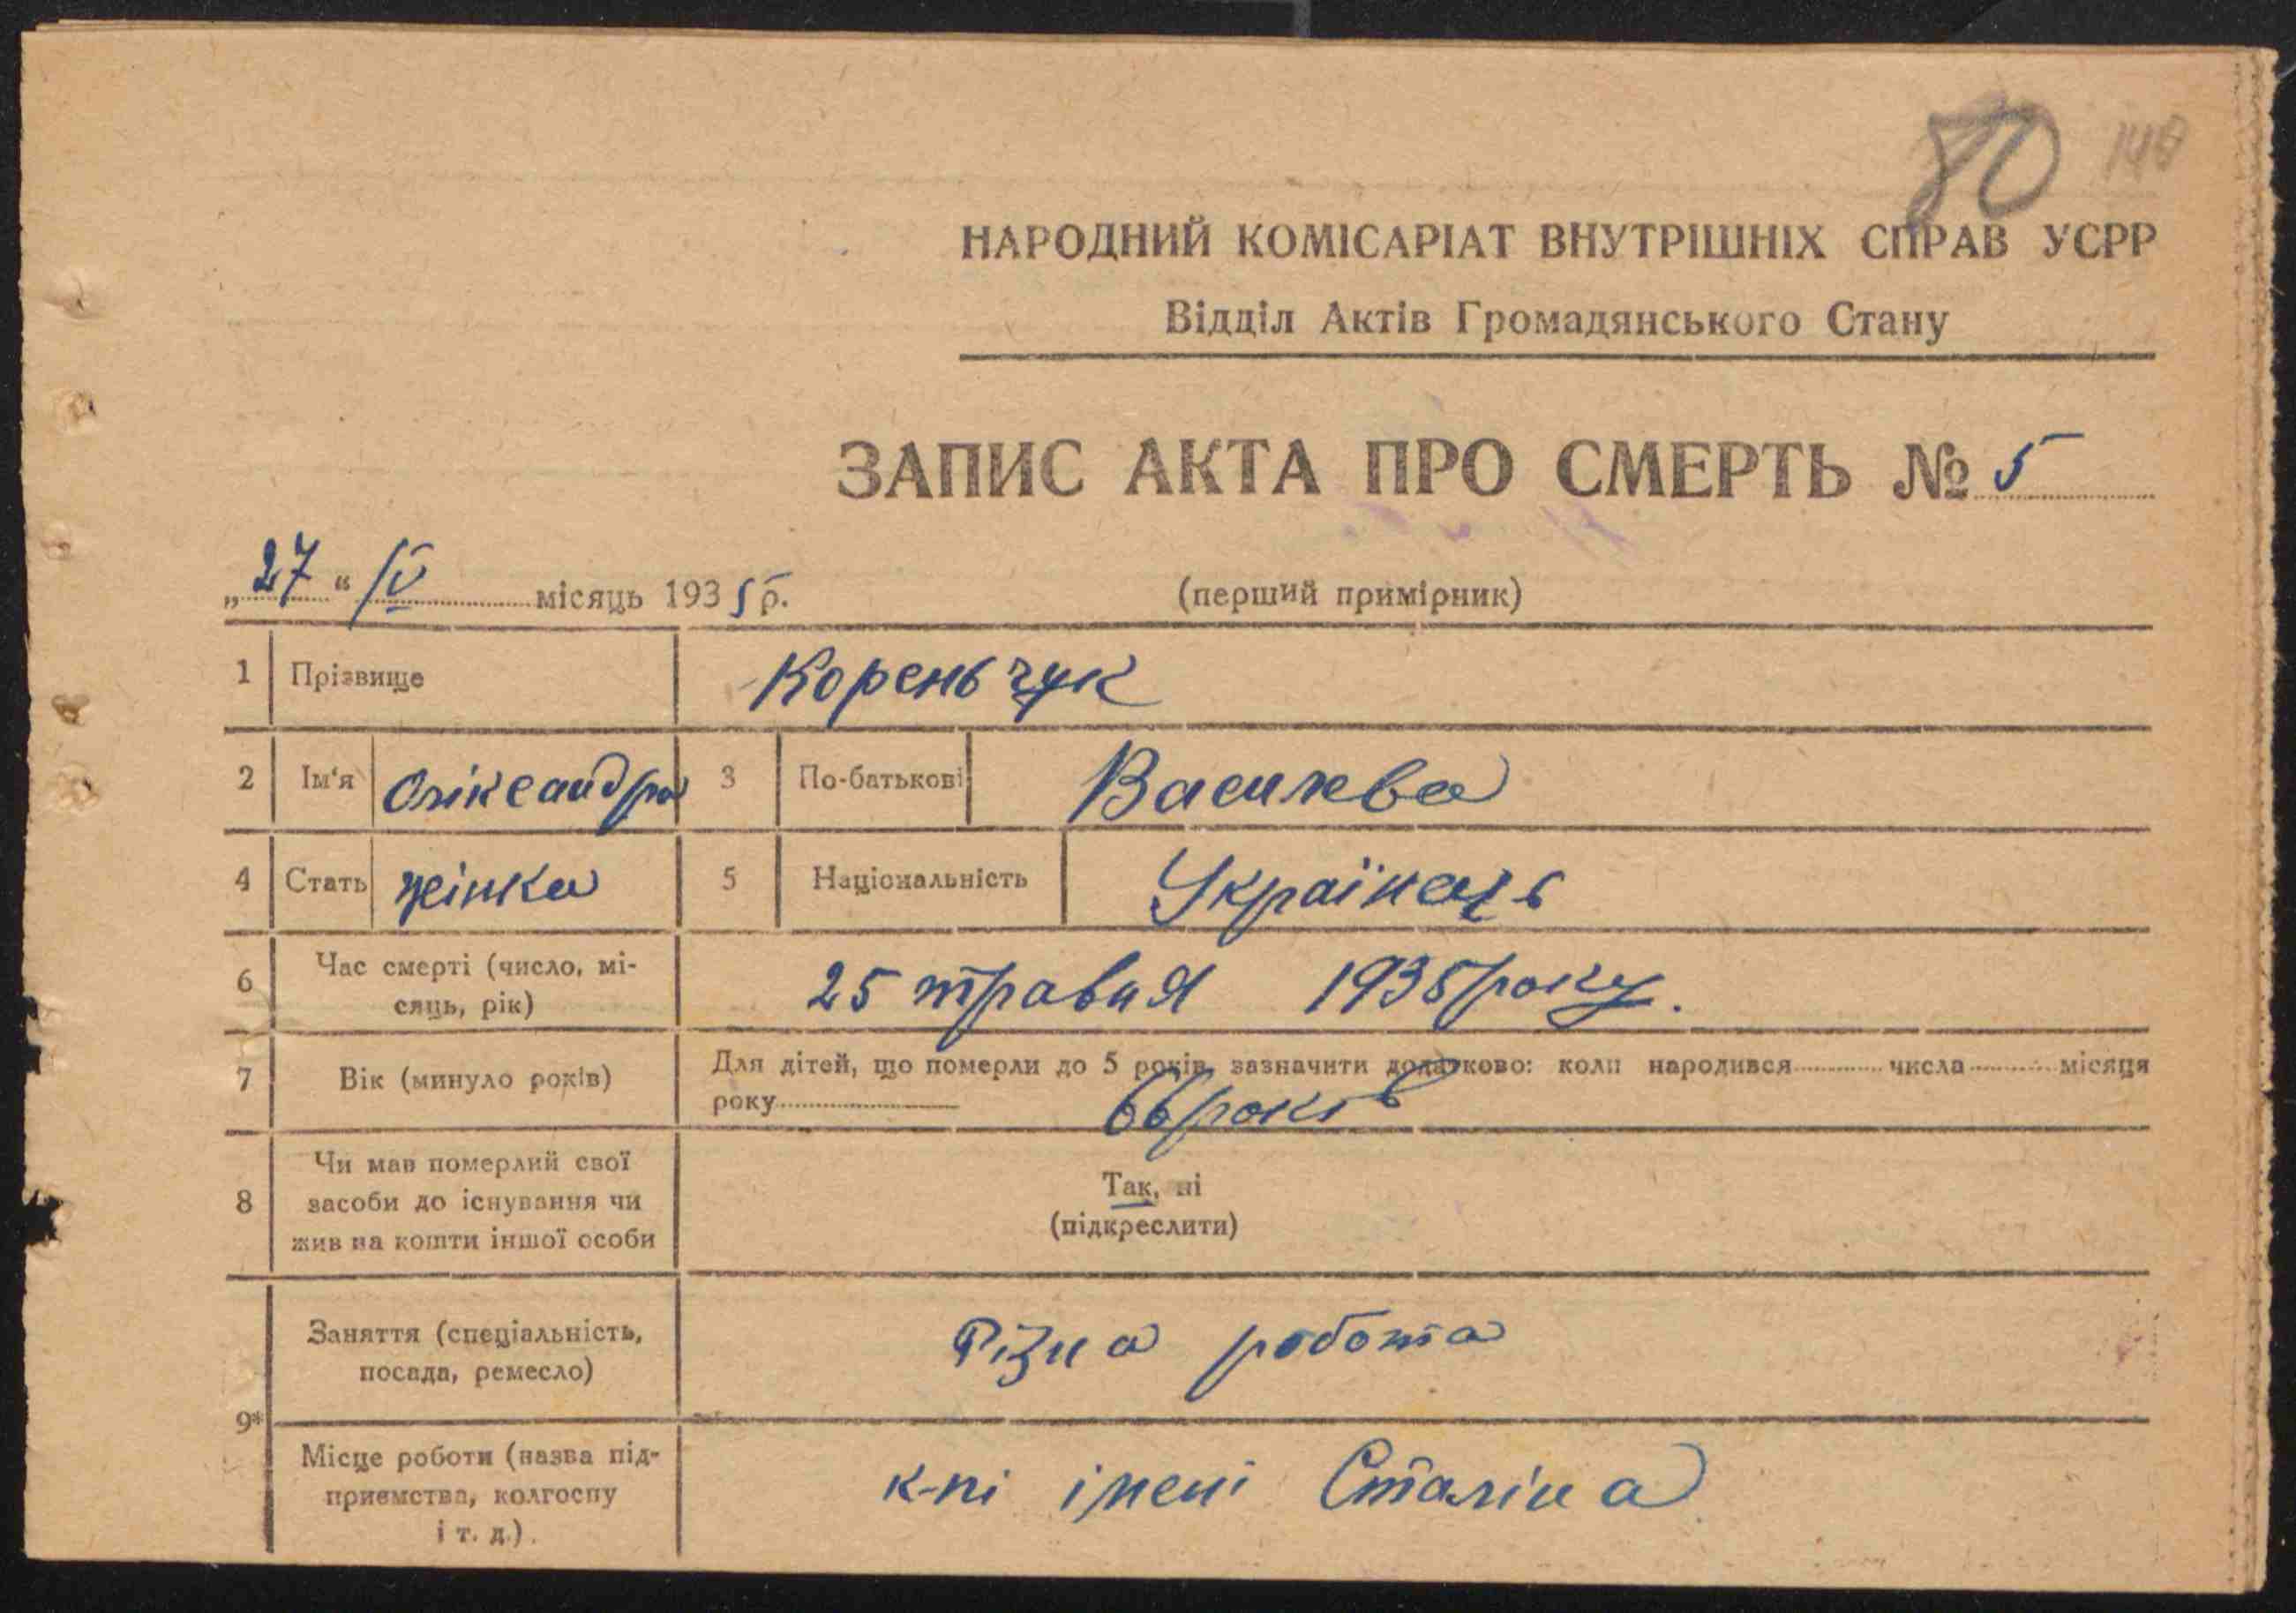 80 148
НАРОДНИЙ КОМІСАРІАТ ВНУТРІШНІХ СПРАВ УСРР
Відділ Актів Громадянського Стану
ЗАПИС АКТА ПРО СМЕРТЬ № 5
„27“ IV місяць 1935 р.
(перший примірник)
1 Прізвище Кореньчук
2 Ім'я Оліксандра 3 По-батькові Василева
4 Стать жінка 5 Національність Українець
6 Час смерті (число, мі-
сяць, рік) 25 травня 1935 року.
7 Вік (минуло років) Для дітей, що померли до 5 років, зазначити додатково: коли народився числа місяця
року 66 років
8 Чи мав померлий свої
засоби до існування чи
жив на кошти іншої особи
Так, ні
(підкреслити)
9* Заняття (спеціальність,
посада, ремесло) Різна робота
Місце роботи (назва під-
приємства, колгоспу
і т. д.). к-пі імені Сталіна